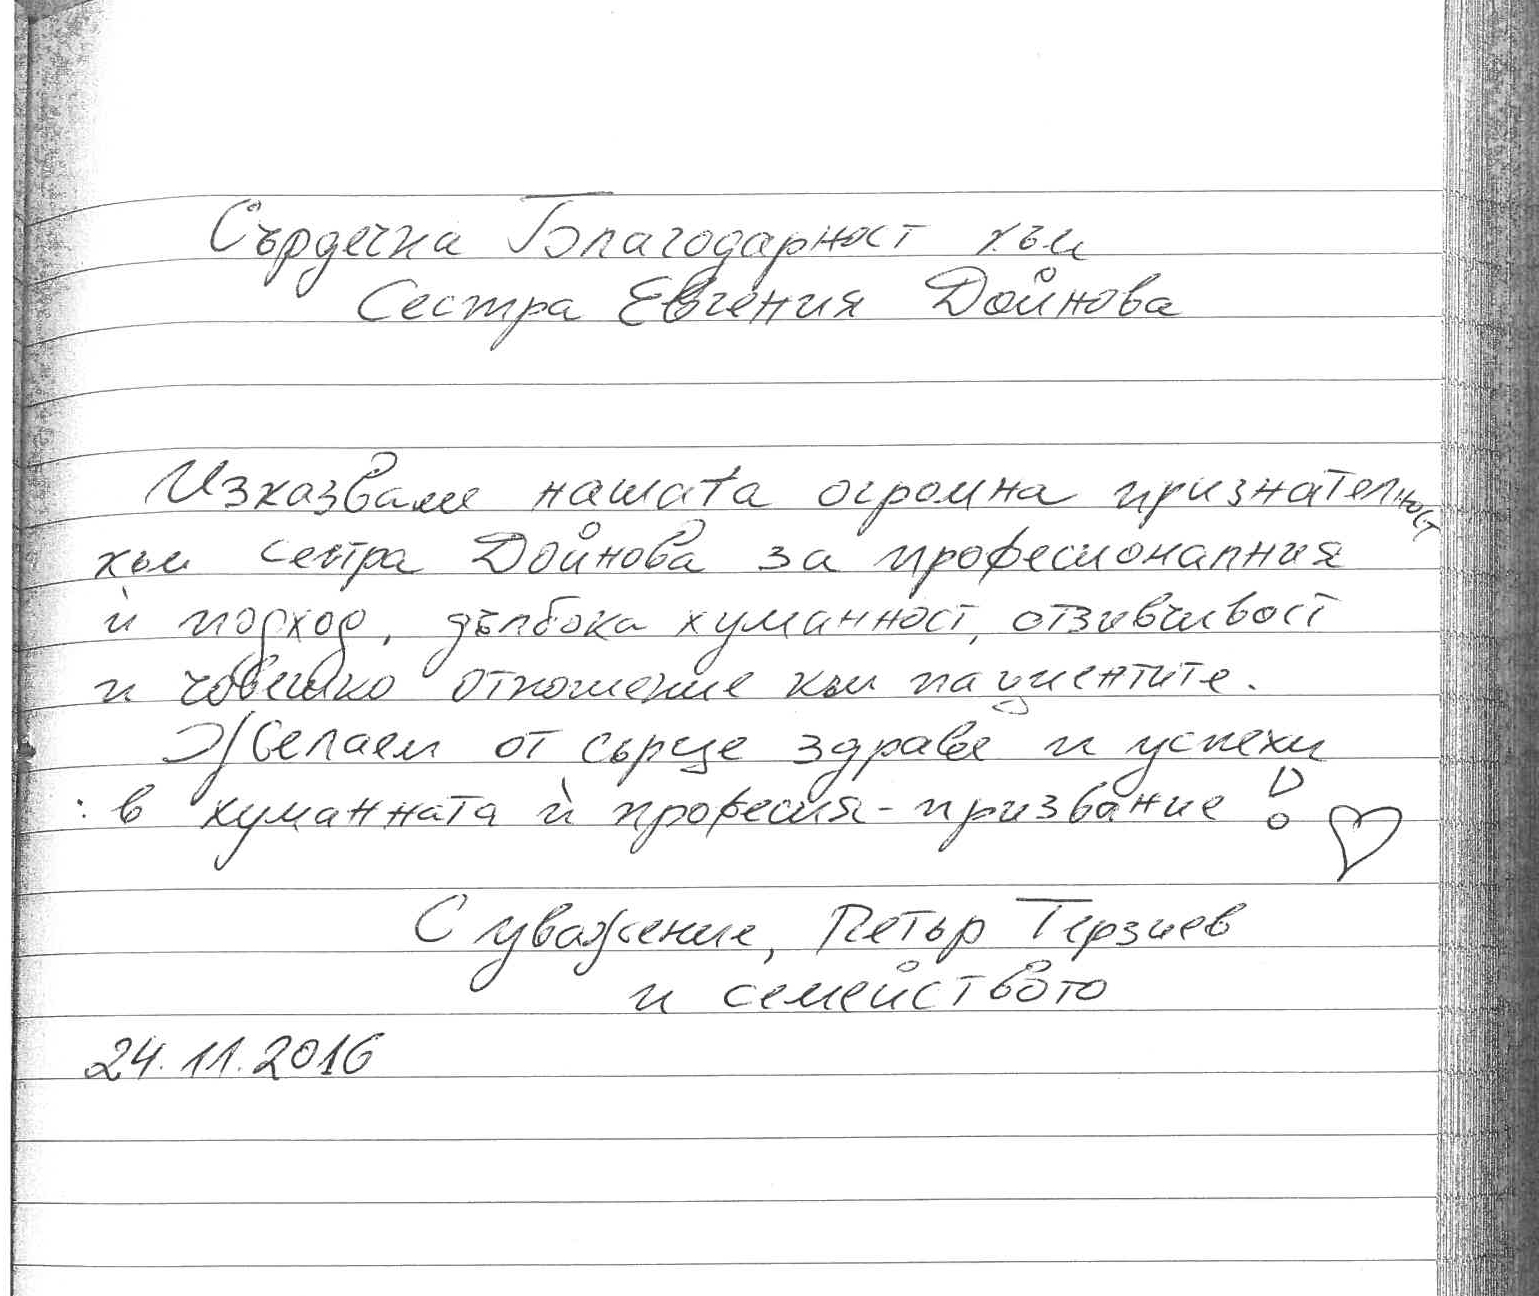 Сърдечна Благодарност към
Сестра Евгения Дойнова
Изказваме нашата огромна признателност
към сестра Дойнова за професионалния
ѝ подход, дълбока хуманност, отзивчивост
и човешко отношение към пациентите.
Желаем от сърце здраве и успехи
в хуманната ѝ професия-призвание!
С уважение, Петър Терзиев
и семейството
24.11.2016